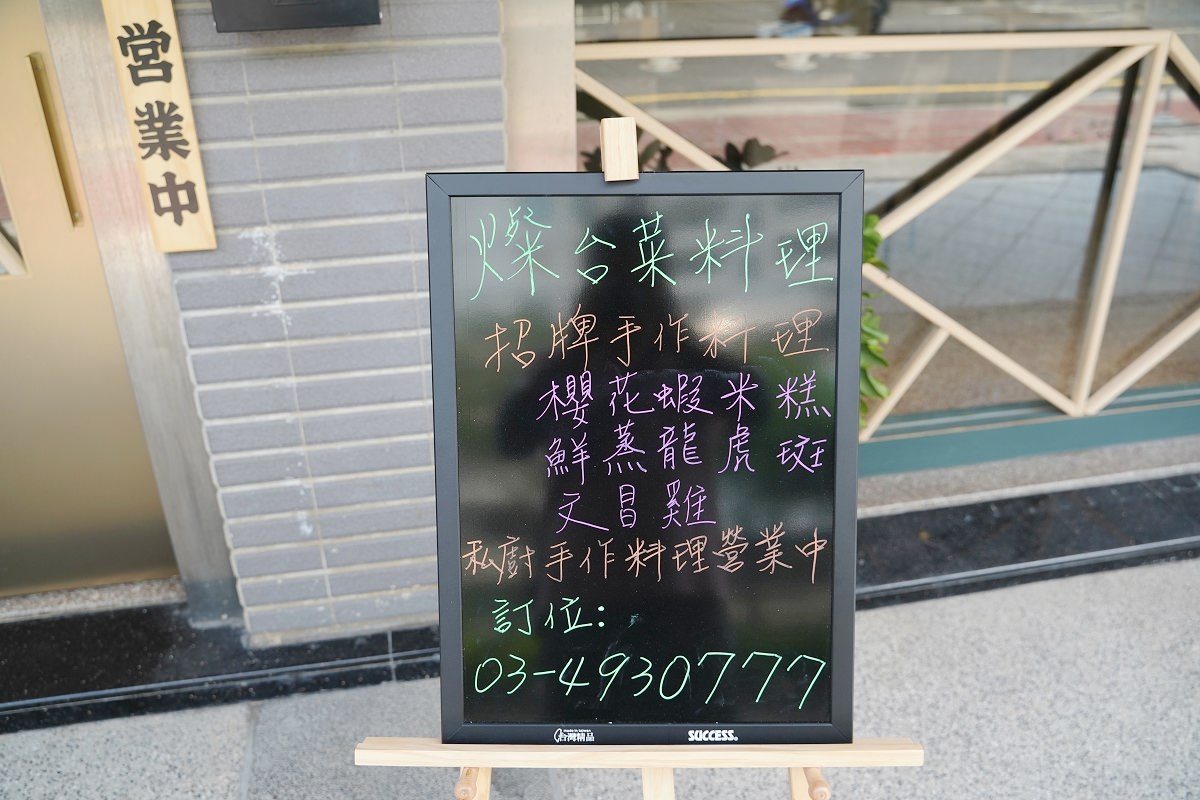 営業中
燦台菜料理
招牌手作料理
櫻花蝦米糕
鮮蒸龍虎斑
文昌雞
私廚手作料理營業中
訂位:
03-4930777
made in taiwan
台灣精品
SUCCESS®